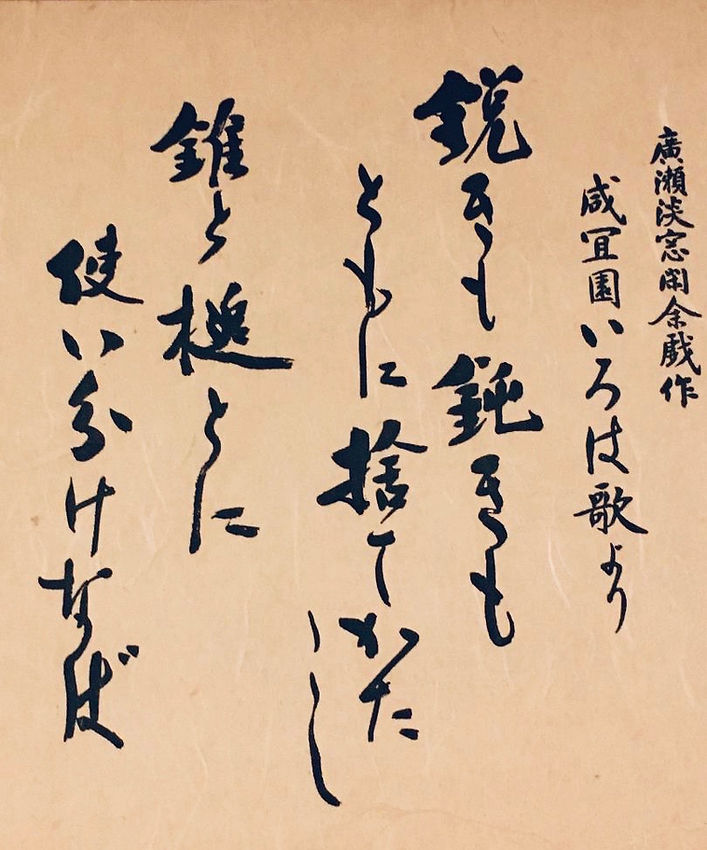 廣瀬淡窓閑余戯作
咸宜園いろは歌より
鋭きも鈍きも
ともに捨てかた
し
錐と槌とに
使い分けなば